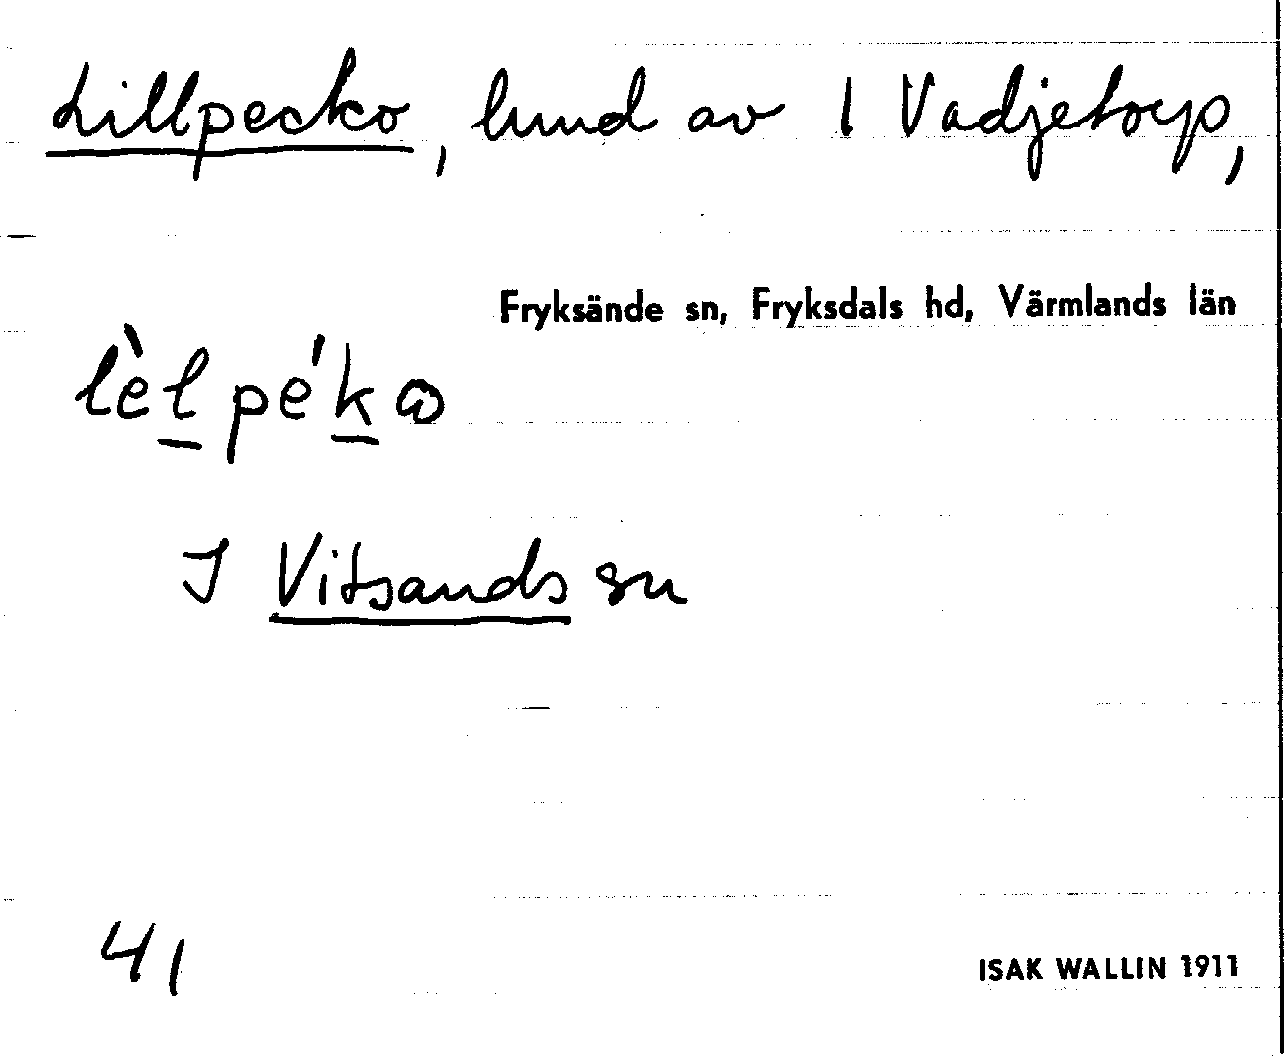 Lillpecko, lund av 1 Vadjetorp,
Fryksände sn, Fryksdals hd, Värmlands län
lèl̠pék̠ɷ
I Vitsands sn
41
ISAK WALLIN 1911